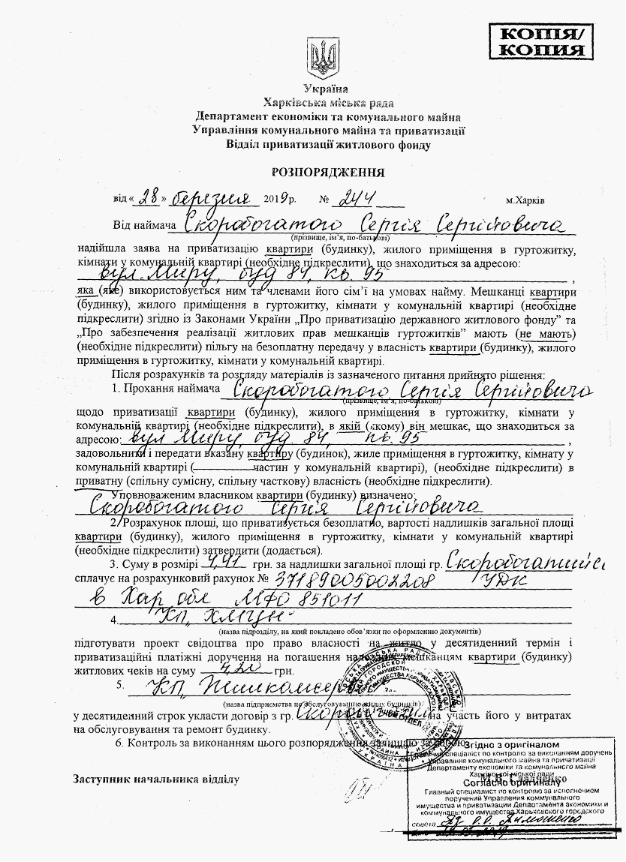 КОПІЯ/
КОПИЯ
Україна
Харківська міська рада
Департамент економіки та комунального майна
Управління комунального майна та приватизації
Відділ приватизації житлового фонду
РОЗПОРЯДЖЕННЯ
від « 28 » березня 2019р. № 244 м.Харків
Від наймача Скоробогатого Сергія Сергійовича
(прізвище, ім'я, по-батькові)
надійшла заява на приватизацію квартири (будинку), жилого приміщення в гуртожитку,
кімнати у комунальній квартирі (необхідне підкреслити), що знаходиться за адресою:
вул. Миру, буд 84, кв. 95,
яка (яке) використовується ним та членами його сім'ї на умовах найму. Мешканці квартири
(будинку), жилого приміщення в гуртожитку, кімнати у комунальній квартирі (необхідне
підкреслити) згідно із Законами України „Про приватизацію державного житлового фонду" та
„Про забезпечення реалізації житлових прав мешканців гуртожитків" мають (не мають)
(необхідне підкреслити) пільгу на безоплатну передачу у власність квартири (будинку), жилого
приміщення в гуртожитку, кімнати у комунальній квартирі.
Після розрахунків та розгляду матеріалів із зазначеного питання прийнято рішення:
1. Прохання наймача Скоробогатого Сергія Сергійовича
(прізвище, ім'я, по-батькові)
щодо приватизації квартири (будинку), жилого приміщення в гуртожитку, кімнати у
комунальній квартирі (необхідне підкреслити), в якій (якому) він мешкає, що знаходиться за
адресою: вул Миру, буд 84, кв. 95,
задовольнити і передати вказану квартиру (будинок), жиле приміщення в гуртожитку, кімнату у
комунальній квартирі ( частин у комунальній квартирі), (необхідне підкреслити) в
приватну (спільну сумісну, спільну часткову) власність (необхідне підкреслити).
Уповноваженим власником квартири (будинку) визначено:
Скоробогатого Сергія Сергійовича
2. Розрахунок площі, що приватизується безоплатно, вартості надлишків загальної площі
квартири (будинку), жилого приміщення в гуртожитку, кімнати у комунальній квартирі
(необхідне підкреслити) затвердити (додається).
3. Суму в розмірі грн. за надлишки загальної площі гр. Скоробогатий
сплачує на розрахунковий рахунок № 37189005002208 УДК
в Хар обл МФО 851011
4. КП
(назва підрозділу, на який покладено обов'язки по оформленню документів)
підготувати проект свідоцтва про право власності на житло у десятиденний термін і
приватизаційні платіжні доручення на погашення мешканцям квартири (будинку)
житлових чеків на суму грн.
5. КП „Жилкомсервіс"
(назва підприємства по обслуговуванню будинків)
у десятиденний строк укласти договір з гр. на участь його у витратах
на обслуговування та ремонт будинку.
6. Контроль за виконанням цього розпорядження залишаю за собою.
Заступник начальника відділу
Згідно з оригіналом
Головний спеціаліст по контролю за виконанням доручень
Управління комунального майна та приватизації
Департаменту економіки та комунального майна
Харківської міської ради
Согласно оригиналу
Главный специалист по контролю за исполнением
поручений Управления коммунального
имущества и приватизации Департамента экономики и
коммунального имущества Харьковского городского
совета